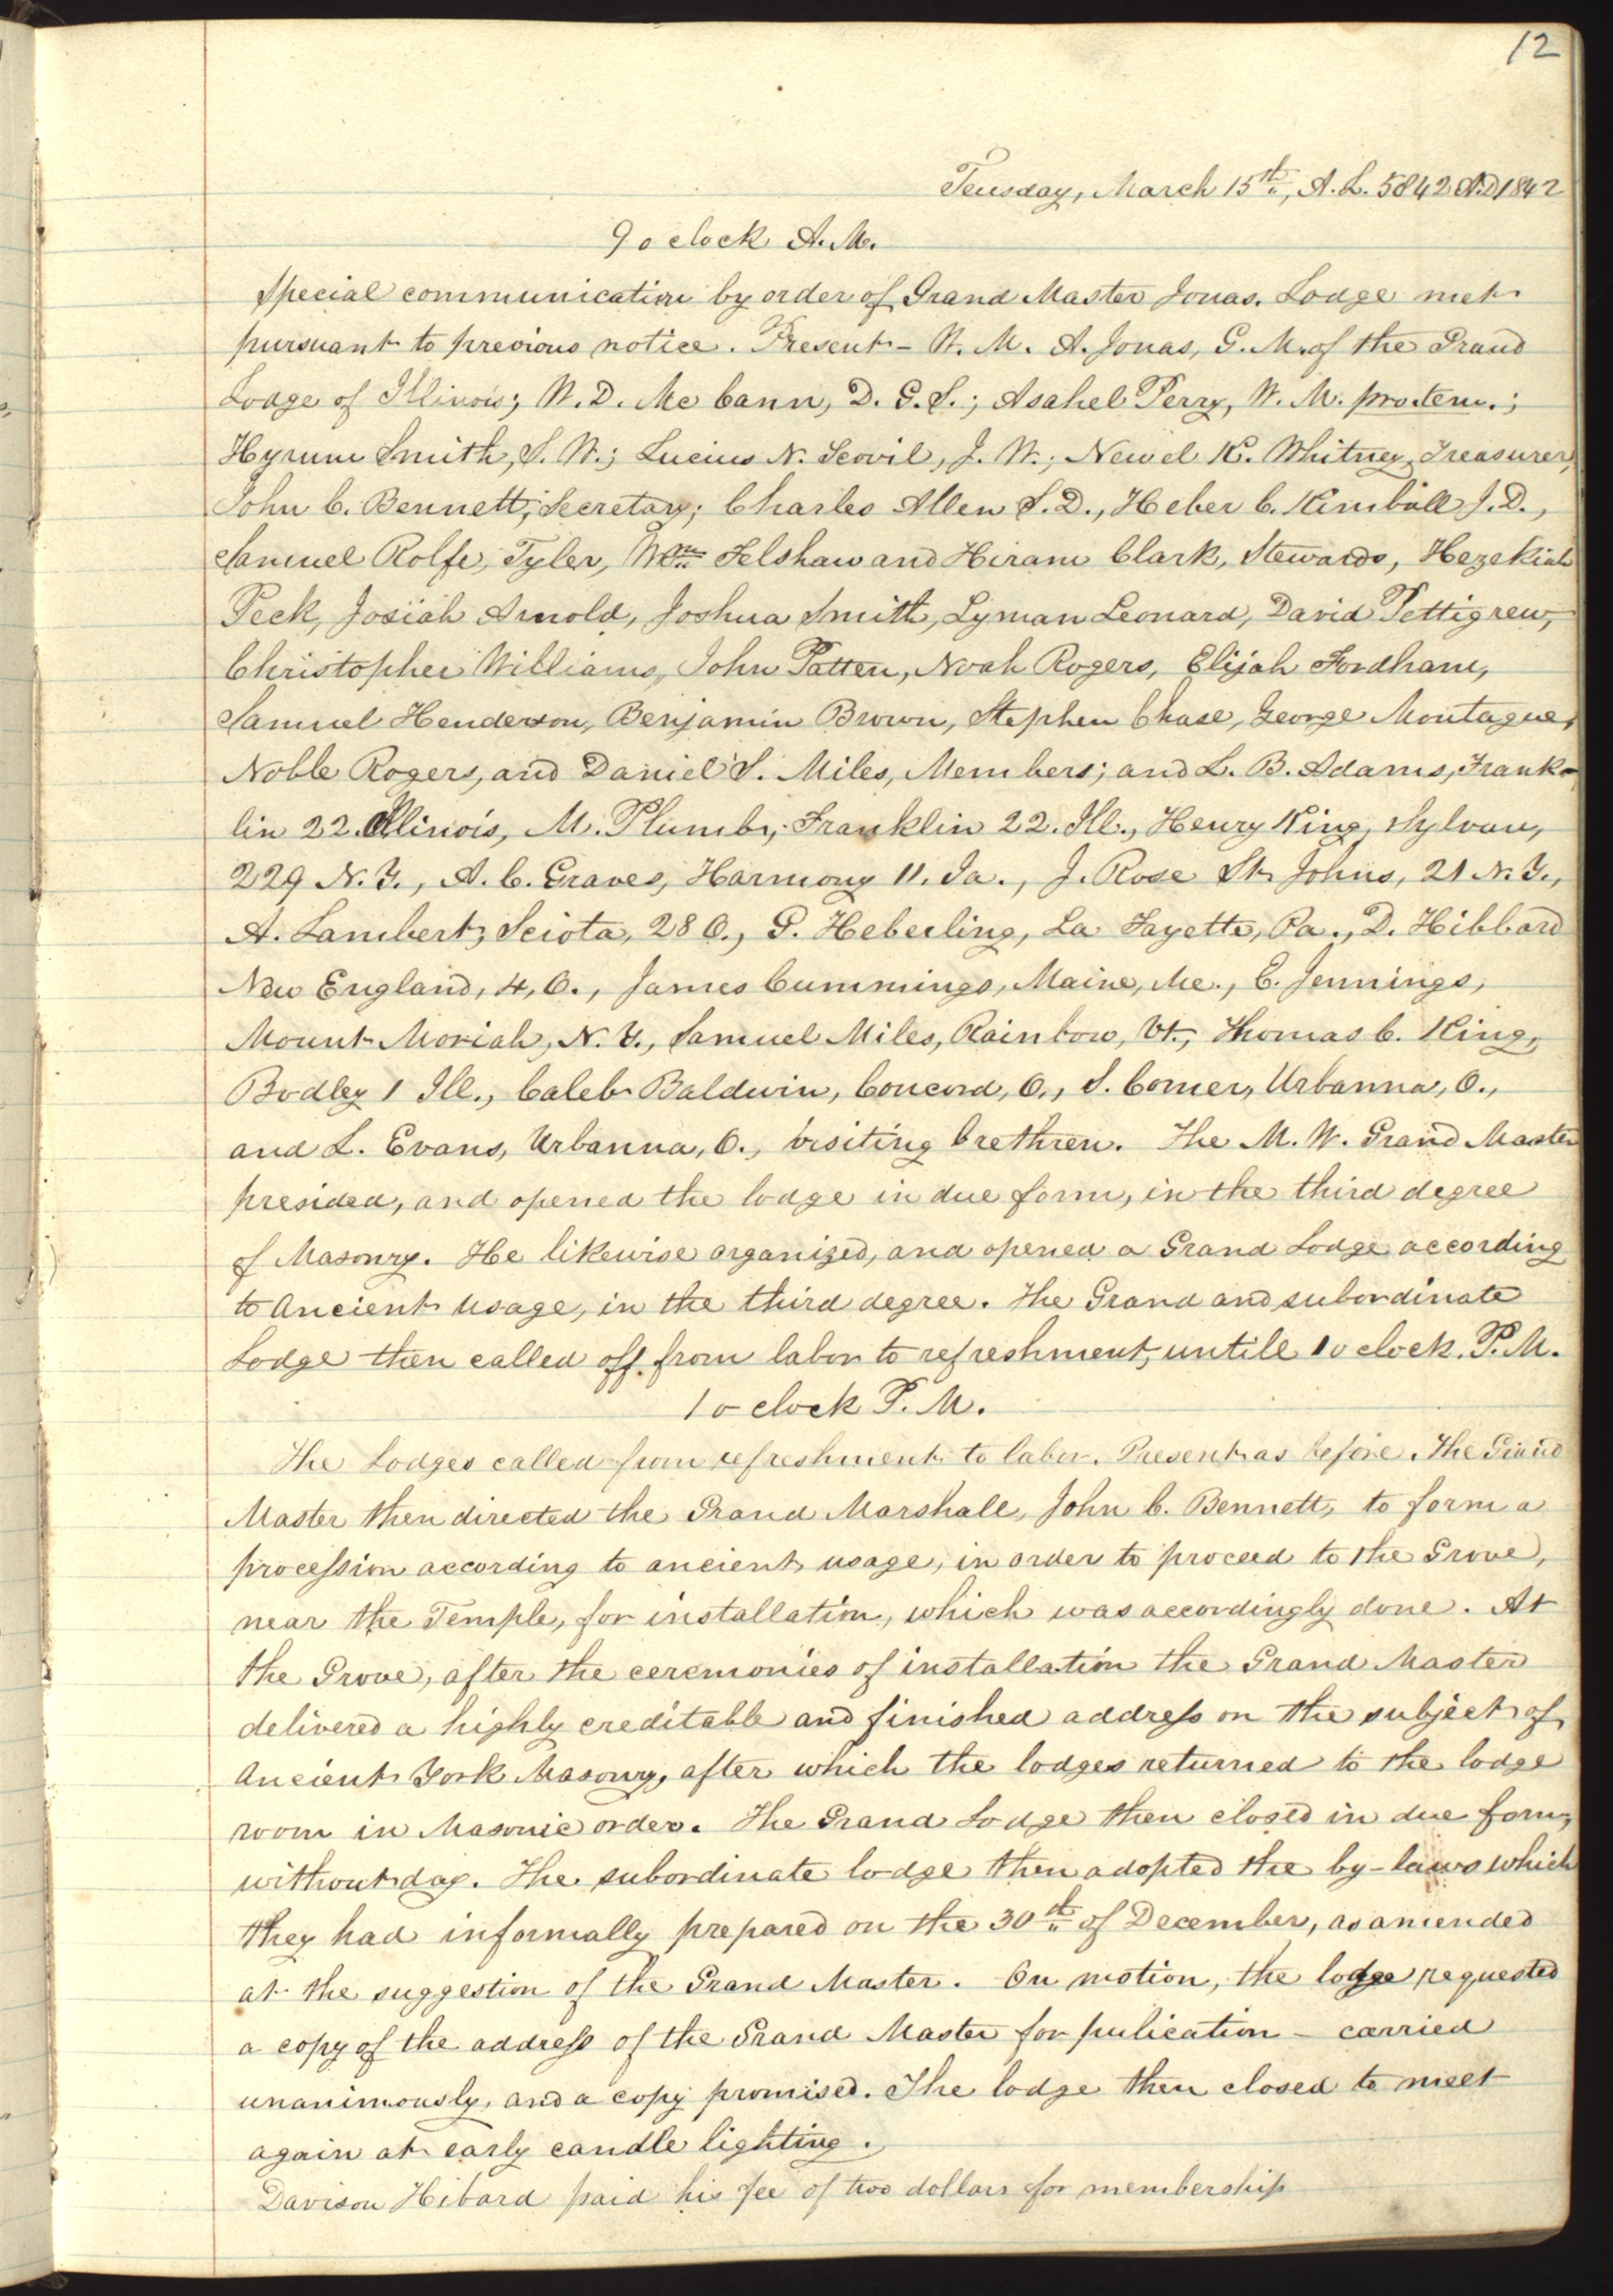 12
Teusday, March 15th, A. L. 5842 A.D 1842
9 o clock A. M.
Special communication by order of Grand Master Jonas. Lodge met
pursuant to previous notice. Present - W. M. A. Jonas, G. M. of the Grand
Lodge of Illinois; W. D. Mc Cann, D. G. S.; Asahel Perry, W. M. pro. tem.;
Hyrum Smith, S. W.; Lucius N. Scovil, J. W.; Newel K. Whitney, Treasurer,
John C. Bennett, Secretary; Charles Allen S. D., Heber C. Kimball J. D.,
Samuel Rolfe, Tyler, Wm Felshaw and Hiram Clark, Stewards, Hezekiah
Peck, Josiah Arnold, Joshua Smith, Lyman Leonard, David Pettigrew,
Christopher Williams, John Patten, Noah Rogers, Elijah Fordham,
Samuel Henderson, Benjamin Brown, Stephen Chase, George Montague,
Noble Rogers, and Daniel S. Miles, Members; and L. B. Adams, Frank-
lin 22. Illinois, M. Plumb, Franklin 22. Ill., Henry King, Sylvan,
229 N. Y., A. C. Graves, Harmony 11. Ia., J. Rose St. Johns, 21 N. Y.,
A. Lambert, Sciota, 28 O., G. Heberling, La Fayette, Pa., D. Hibbard
New England, 4, O., James Cummings, Maine, Me., E. Jennings,
Mount Moriah, N. Y., Samuel Miles, Rainbow, Vt., Thomas C. King,
Bodley 1 Ill., Caleb Baldwin, Concord, O., S. Comer, Urbanna, O.,
and L. Evans, Urbanna, O., visiting brethren. The M. W. Grand Master
presided, and opened the lodge in due form, in the third degree
of Masonry. He likewise organized, and opened a Grand Lodge according
to ancient usage, in the third degree. The Grand and subordinate
Lodge then called off from labor to refreshment, untill 1 o clock. P. M.
1 o clock P. M.
The Lodges called from refreshment to labor. Present as before. The Grand
Master then directed the Grand Marshall, John C. Bennett, to form a
procession according to ancient usage, in order to proceed to the Grove,
near the Temple, for installation, which was accordingly done. At
the Grove, after the ceremonies of installation the Grand Master
delivered a highly creditable and finished address on the subject of
Ancient York Masonry, after which the lodges returned to the lodge
room in Masonic order. The Grand Lodge then closed in due form,
without day. The subordinate lodge then adopted the by-laws which
they had informally prepared on the 30th of December, as amended
at the suggestion of the Grand Master. On motion, the lodge requested
a copy of the address of the Grand Master for pulication - carried
unanimously, and a copy promised. The lodge then closed to meet
again at early candle lighting.
Davison Hibard paid his fee of two dollars for membership